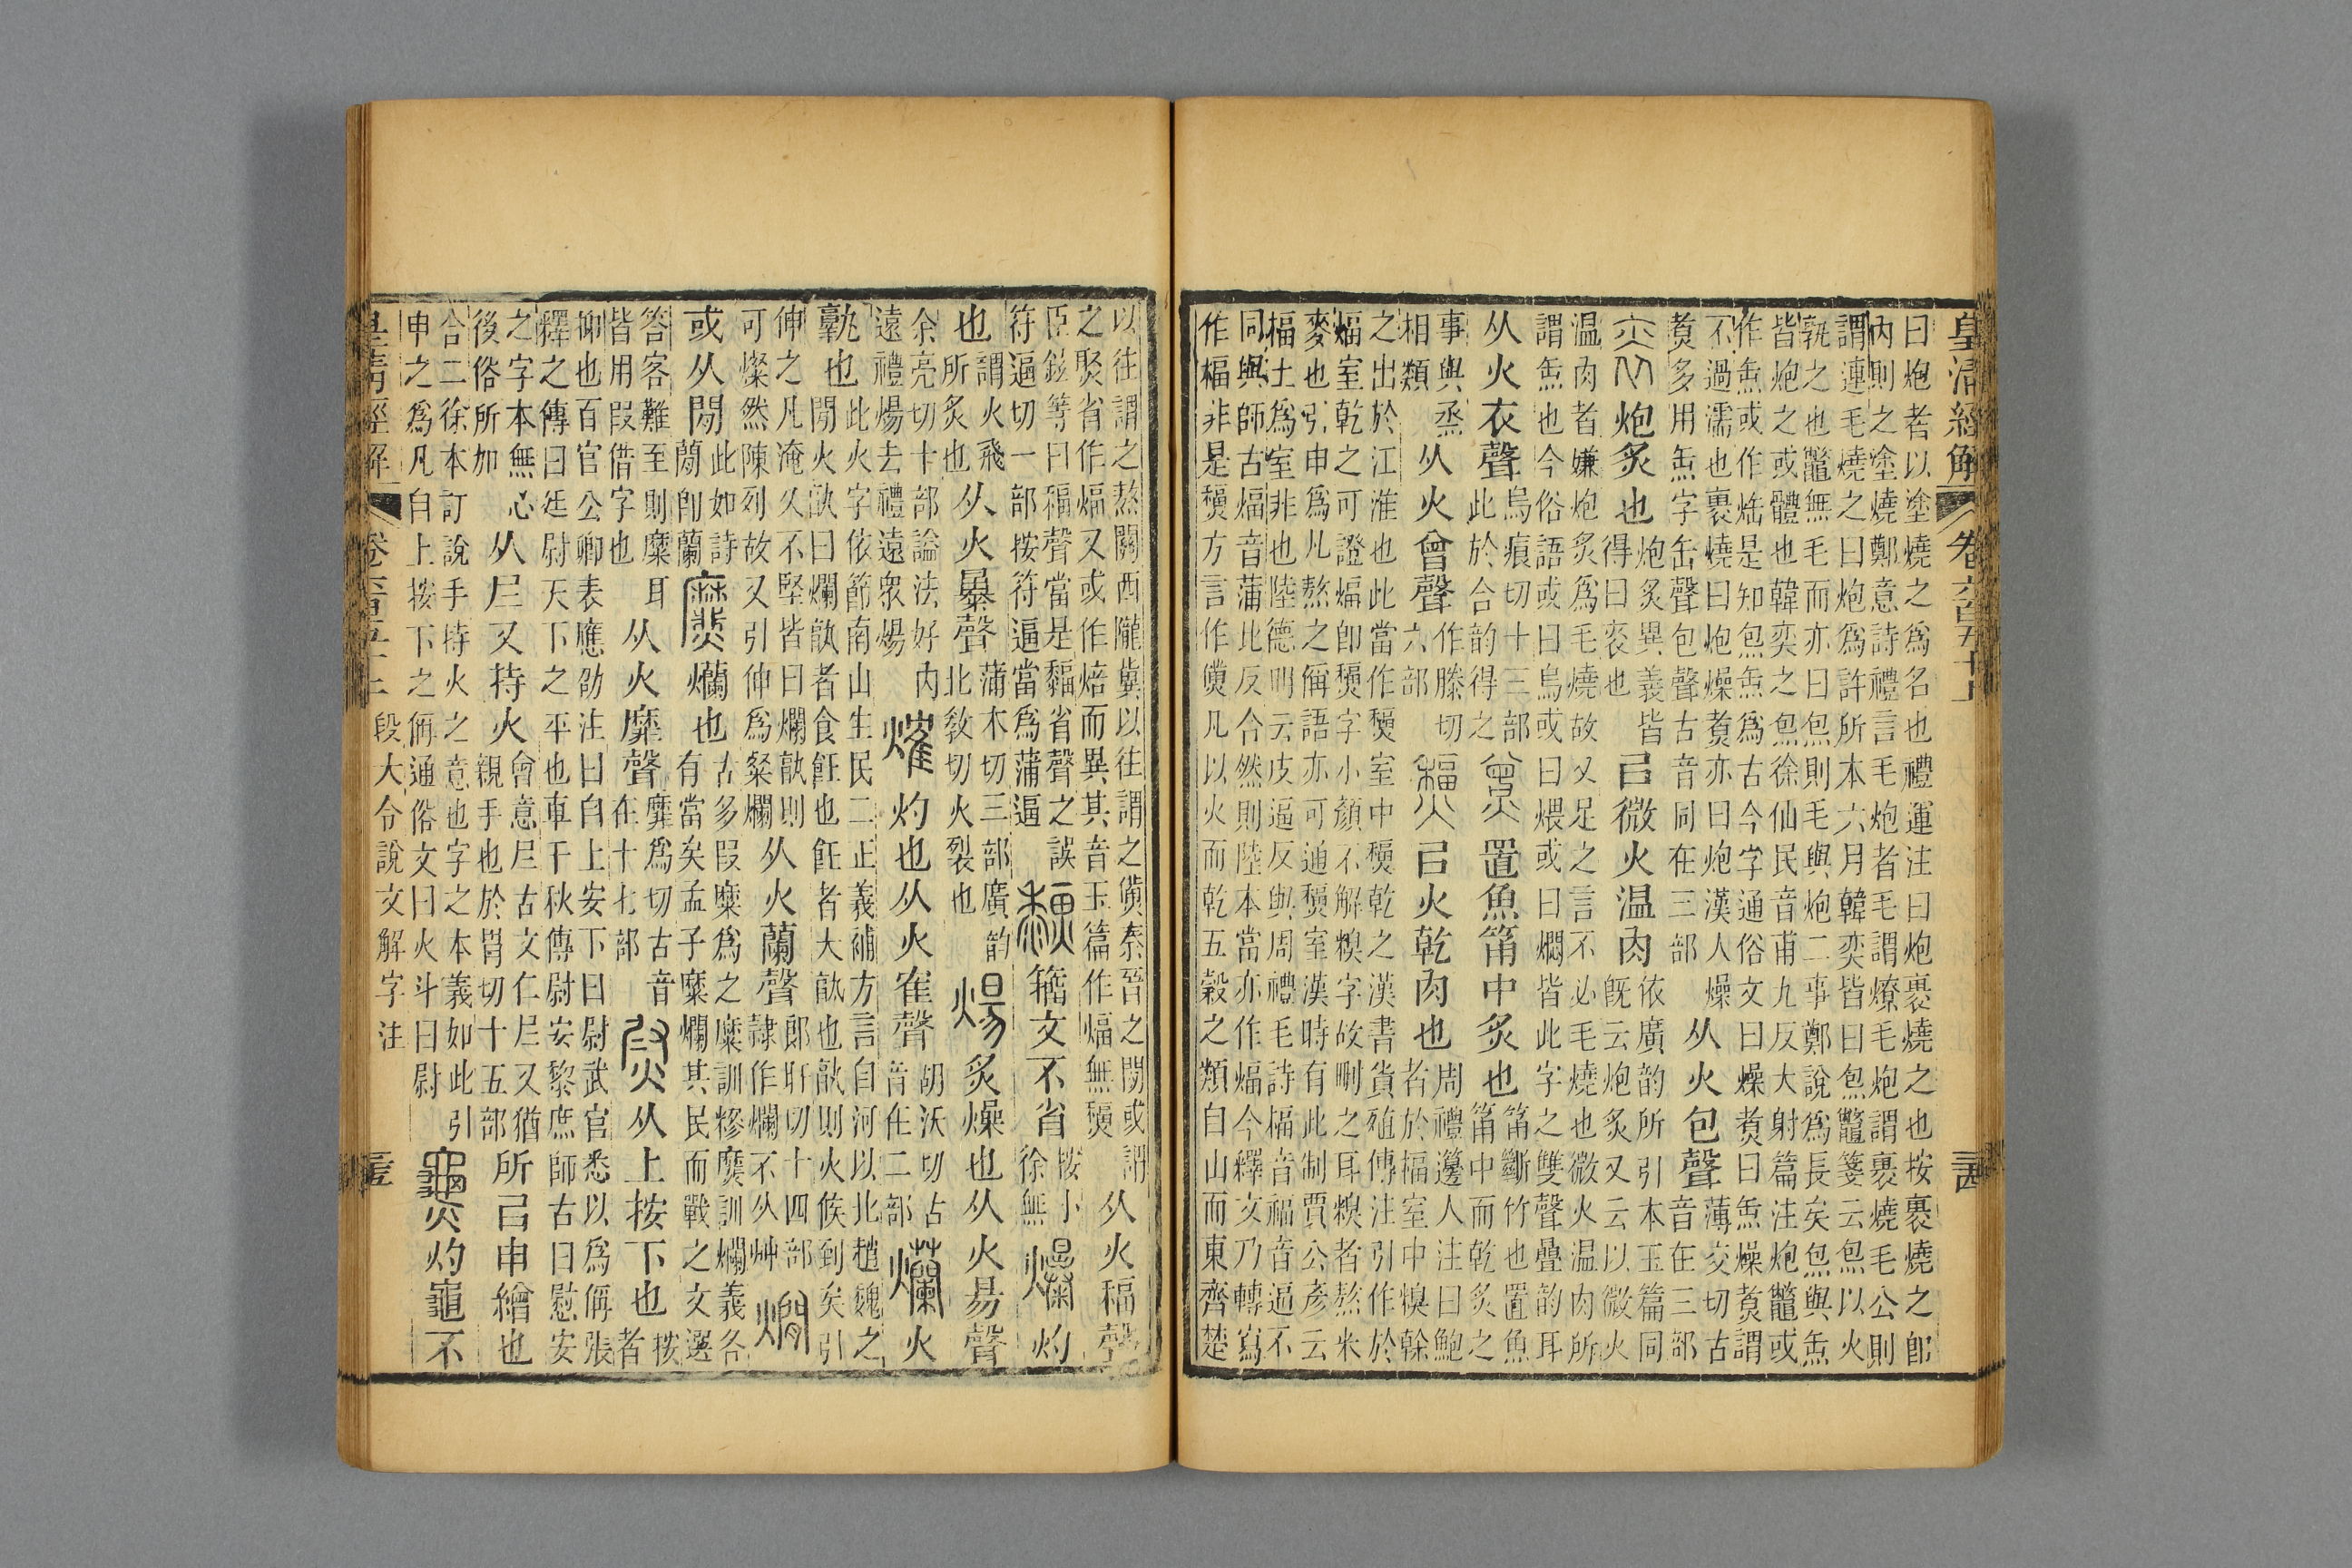 皇清經解 卷六百五十上 三四
曰炮者以塗燒之爲名也禮運注曰炮裹燒之也按裹燒之卽
內則之塗燒鄭意詩禮言毛炮者毛謂燎毛炮謂裹燒毛公則
謂連毛燒之曰炮爲許所本六月韓奕皆曰炰鼈箋云炰以火
孰之也鼈無毛而亦曰炰則毛與炮二事鄭說爲長矣炰與缹
皆炮之或體也韓奕之炰徐仙民音甫九反大射篇注炮鼈或
作缹或作㷛是知炰缹爲古今字通俗文曰燥煑曰缹燥煑謂
不過濡也裹燒曰炮燥煑亦曰炮漢人燥
煑多用缹字缶聲包聲古音同在三部
从火包聲
薄交切古
音在三部
炮炙也
炮炙異義皆
得曰𤆍也
㠯微火温肉
依廣韵所引本玉篇同
旣云炮炙又云以微火
温肉者嫌炮炙爲毛燒故又足之言不必毛燒也微火温肉所
謂缹也今俗語或曰烏或曰煨或曰燜皆此字之雙聲疊韵耳
从火衣聲
烏痕切十三部
此於合韵得之
置魚筩中炙也
筩斷竹也置魚
筩中而乾炙之
事與烝
相類
从火曾聲
作滕切
六部
㠯火乾肉也
周禮籩人注曰鮑
者於楅室中糗榦
之出於江淮也此當作𤐧室中𤐧乾之漢書貨殖傳注引作於
煏室乾之可證煏卽𤐧字小顏不解糗字故刪之耳糗者熬米
麥也引申爲凡熬之偁語亦可通𤐧室漢時有此制賈公彥云
楅土爲室非也陸德明云皮逼反與周禮毛詩楅音福音逼不
同與師古煏音蒲北反合然則陸本當亦作煏今釋文乃轉寫
作楅非是𤐧方言作㷶凡以火而乾五穀之類自山而東齊楚
以往謂之熬關西隴冀以往謂之㷶秦晉之閒或謂
之聚省作煏又或作焙而異其音玉篇作煏無𤐧
从火稫聲
臣鉉等曰稫聲當是𤐧省聲之誤
符逼切一部按符逼當爲蒲逼
籒文不省
按小
徐無
爆
灼
也
謂火飛
所炙也
从火暴聲
蒲木切三部廣韵
北敎切火裂也
煬
炙燥也从火昜聲
余亮切十部諡法好內
遠禮煬去禮遠衆煬
㸌
灼也从火隺聲
胡沃切古
音在二部
爤
火
孰也
此火字依節南山生民二正義補方言自河以北趙魏之
閒火𩚬曰爛𩚬者食飪也飪者大𩚬也𩚬則火候到矣引
伸之凡淹久不堅皆曰爛𩚬則
可燦然陳列故又引伸爲粲爛
从火蘭聲
郎旰切十四部
隷作爛不从艸
燗
或从閒
此如詩
蕑卽蘭
爢
爛也
古多叚糜爲之糜訓糝爢訓爛義各
有當矣孟子糜爛其民而戰之文選
答客難至則糜耳
皆用叚借字也
从火靡聲
靡爲切古音
在十七部
从上按下也
按
者
抑也百官公卿表應劭注曰自上安下曰尉武官悉以爲偁張
釋之傳曰廷尉天下之平也車千秋傳尉安黎庶師古曰慰安
之字本無心
後俗所加
从𡰥又持火
會意𡰥古文仁𡰥又猶
親手也於胃切十五部
所㠯申繒也
合二徐本訂說手持火之意也字之本義如此引
申之爲凡自上按下之偁通俗文曰火斗曰尉
灼龜不
皇清經解 卷六百五十上 段大令說文解字注 三五